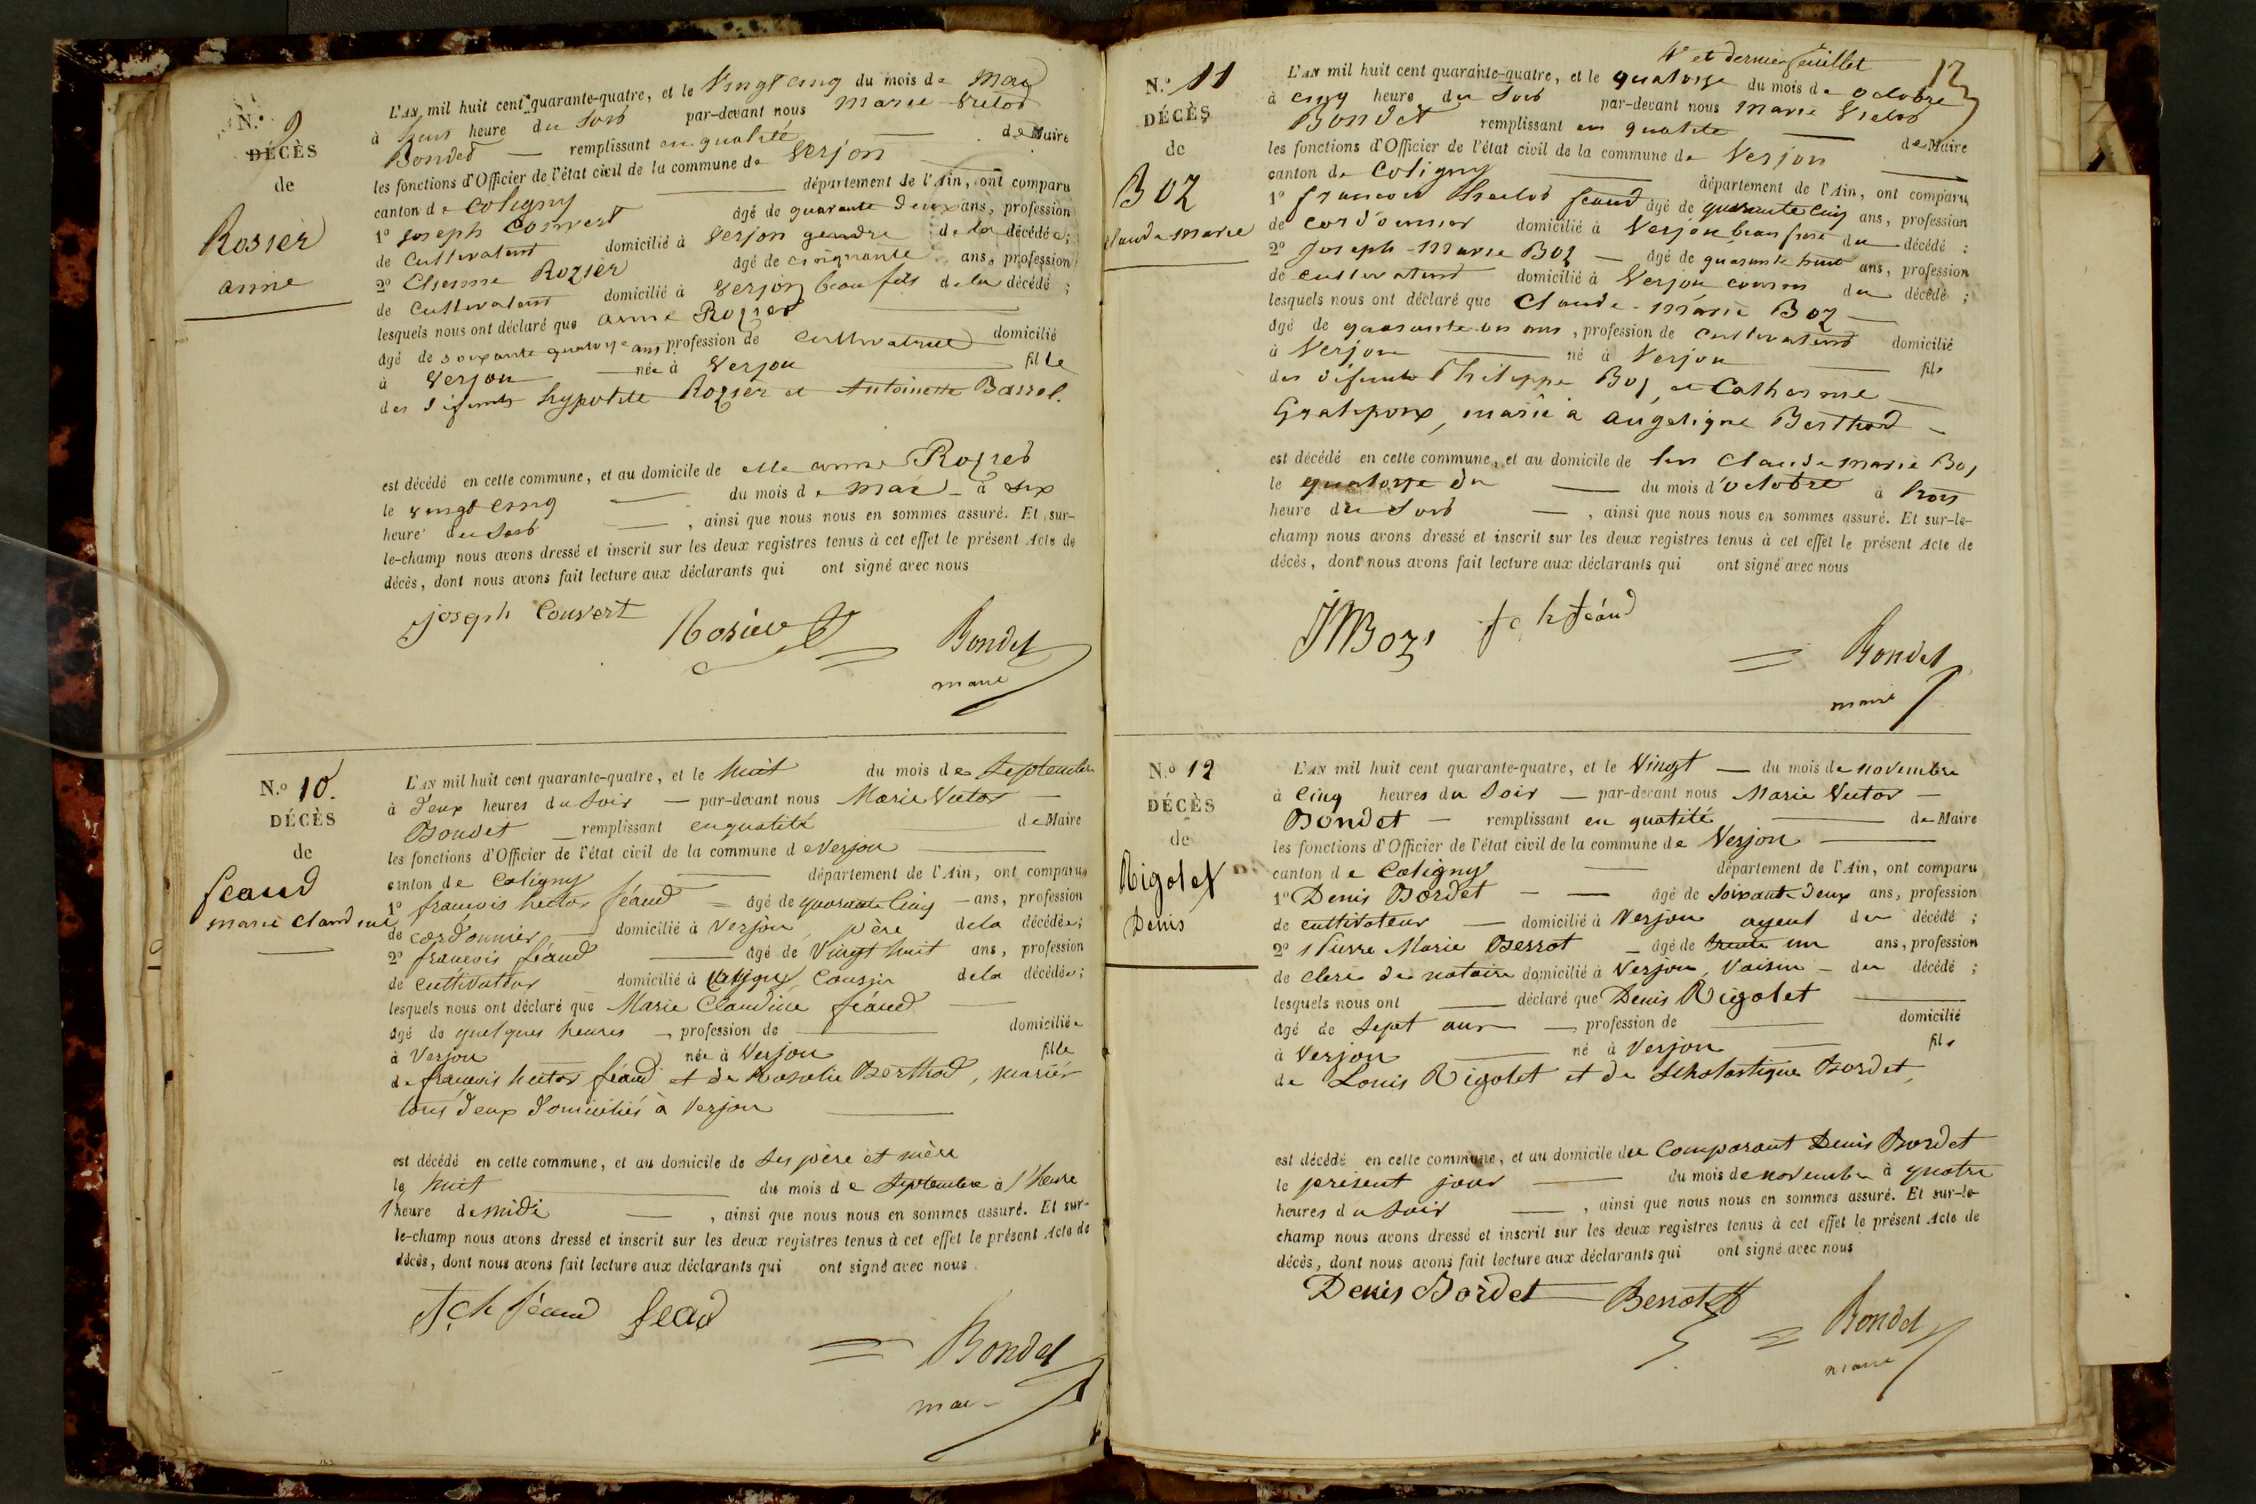 N.o 9
DÉCÈS
de
Rosier
anne
L'AN mil huit cent quarante-quatre, et le Vingt cinq du mois de Mai
à huit heure du soir par-devant nous Marie Victor
Bondet — remplissant en qualité — de Maire
les fonctions d'Officier de l'état civil de la commune de Verjon
canton de Coligny — département de l'Ain, ont comparu
1º Joseph Convert âgé de quarante deux ans, profession
de Cultivateur domicilié à Verjon gendre de la décédée;
2º Etienne Rozier âgé de cinquante ans, profession
de Cultivateur domicilié à Verjon beau fils de la décédé;
lesquels nous ont déclaré que anne Rozier
âgé de soixante quatorze ans profession de Cultivatrice domicilié
à Verjon — née à Verjon — fille
des défunts hypolite Rozier et Antoinette Bassel.
est décédé en cette commune, et au domicile de elle anne Rozier
le vingt cinq — du mois de Mai — à six
heure du soir — , ainsi que nous nous en sommes assuré. Et sur-
le-champ nous avons dressé et inscrit sur les deux registres tenus à cet effet le présent Acte de
décès, dont nous avons fait lecture aux déclarants qui ont signé avec nous
joseph Convert Rosier Bondet
maire
N.o 10.
DÉCÈS
de
feaud
marie claudine
L'AN mil huit cent quarante-quatre, et le huit du mois de Septembre
à deux heures du Soir — par-devant nous Marie Victor —
Bondet — remplissant en qualité de Maire
les fonctions d'Officier de l'état civil de la commune de Verjon —
canton de Coligny — département de l'Ain, ont comparus
1º françois hector féaud = âgé de quarante Cinq — ans, profession
de cordonnier — domicilié à Verjon, père de la décédée;
2º françois féaud — âgé de Vingt huit ans, profession
de cultivateur domicilié à Coligny, Cousin de la décédée;
lesquels nous ont déclaré que Marie Claudine féaud —
âgé de quelques heures — profession de — domiciliée
à Verjon née à Verjon fille
de françois hector féaud et de Rosalie Berthod, mariés
tous deux domiciliés à Verjon —
est décédé en cette commune, et au domicile de ses père et mère
le huit — du mois de Septembre à 1 heure
1 heure de midi — , ainsi que nous nous en sommes assuré. Et sur-
le-champ nous avons dressé et inscrit sur les deux registres tenus à cet effet le présent Acte de
décès, dont nous avons fait lecture aux déclarants qui ont signé avec nous
fch féaud feaud
Bondet
mai-
4e et dernier feuillet
12
N.o 11
DÉCÈS
de
BOZ
claude marie
L'AN mil huit cent quarante-quatre, et le quatorze du mois de octobre
à cinq heure du Soir par-devant nous Marie Victor
Bondet remplissant en qualité — de Maire
les fonctions d'Officier de l'état civil de la commune de Verjon
canton de Coligny — département de l'Ain, ont comparu
1º françois hector feaud âgé de quarante cinq ans, profession
de cordonnier domicilié à Verjon, beau frère du décédé:
2º Joseph-Marie Boz — âgé de quarante huit ans, profession
de cultivateur domicilié à Verjon cousin du décédé;
lesquels nous ont déclaré que Claude-Marie Boz —
âgé de quarante un ans, profession de cultivateur domicilié
à Verjon — né à Verjon — fils
des défunts Philippe Boz, et Catherine —
Gratepoux, marié à angelique Berthod —
est décédé en cette commune, et au domicile de lui Claude marie Boz
le quatorze du — du mois d'octobre à trois
heure du Soir — , ainsi que nous nous en sommes assuré. Et sur-le-
champ nous avons dressé et inscrit sur les deux registres tenus à cet effet le présent Acte de
décès, dont nous avons fait lecture aux déclarants qui ont signé avec nous
JMBoz fch féaud
Bondet
maire
N.o 12
DÉCÈS
de
Rigolet
Denis
L'AN mil huit cent quarante-quatre, et le Vingt — du mois de novembre
à Cinq heures du Soir — par-devant nous Marie Victor —
Bondet — remplissant en qualité — de Maire
les fonctions d'Officier de l'état civil de la commune de Verjon —
canton de Coligny — département de l'Ain, ont comparu
1º Denis Bordet — — âgé de soixante deux ans, profession
de cultivateur — domicilié à Verjon ayeul du décédé;
2º Pierre Marie Berrot — âgé de trente un ans, profession
de clerc de notaire domicilié à Verjon, Voisin — du décédé;
lesquels nous ont — déclaré que Denis Rigolet —
âgé de sept ans —, profession de — domicilié
à Verjon — né à Verjon — fils
de Louis Rigolet et de Scholastique Bordet,
est décédé en cette commune, et au domicile du Comparant Denis Bordet
le présent jour — du mois de novembre à quatre
heures du Soir — , ainsi que nous nous en sommes assuré. Et sur-le-
champ nous avons dressé et inscrit sur les deux registres tenus à cet effet le présent Acte de
décès, dont nous avons fait lecture aux déclarants qui ont signé avec nous
Denis Bordet Berrot
Bondet
maire